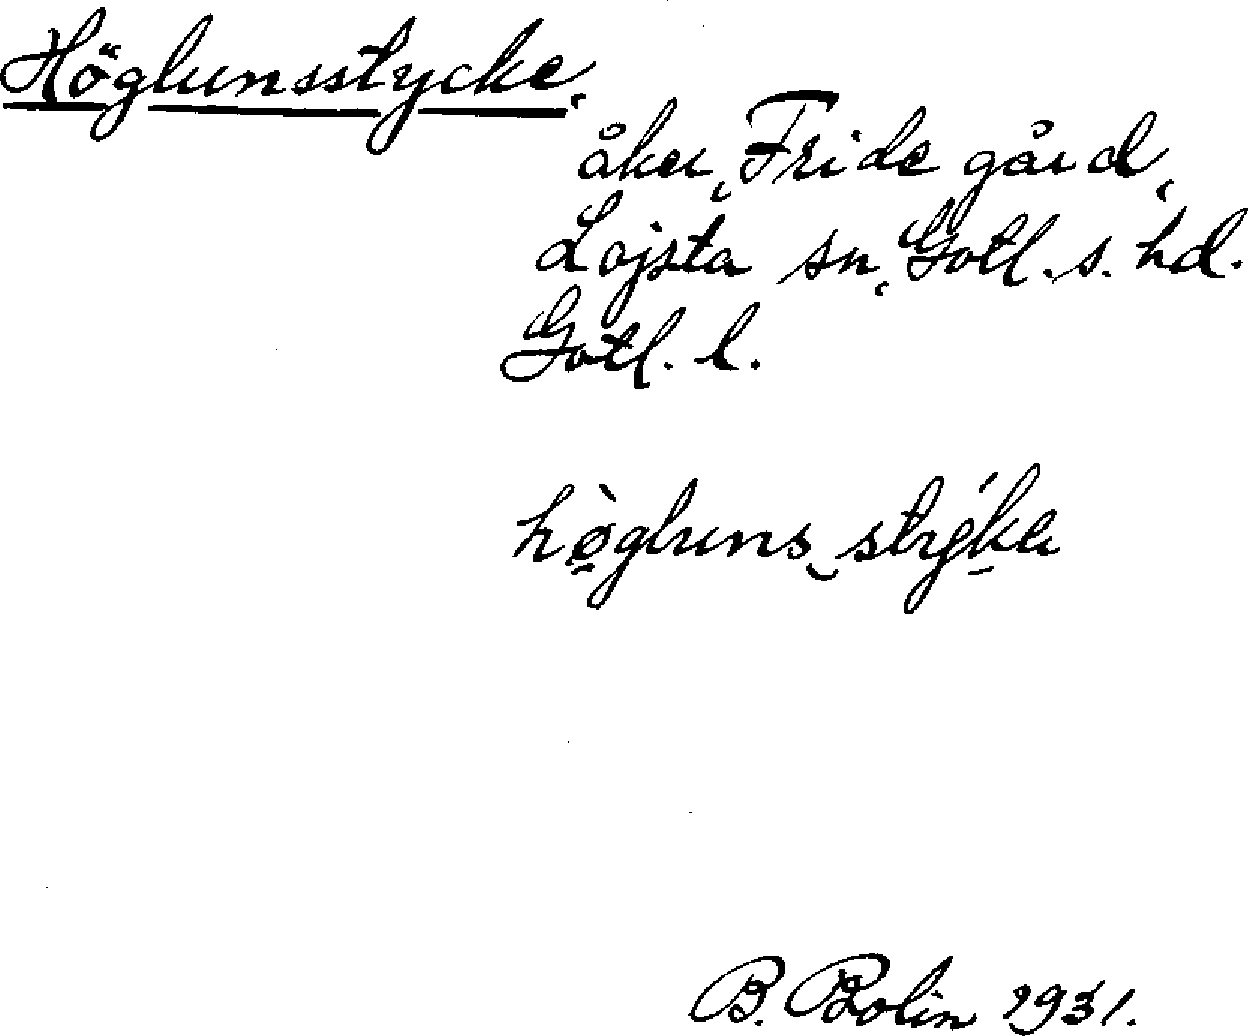 Höglunsstycke,
åker, Fride gård,
Lojsta sn, Gotl. s. hd.
Gotl. l.
hø̀gluns stýka
B. Bolin 1931.